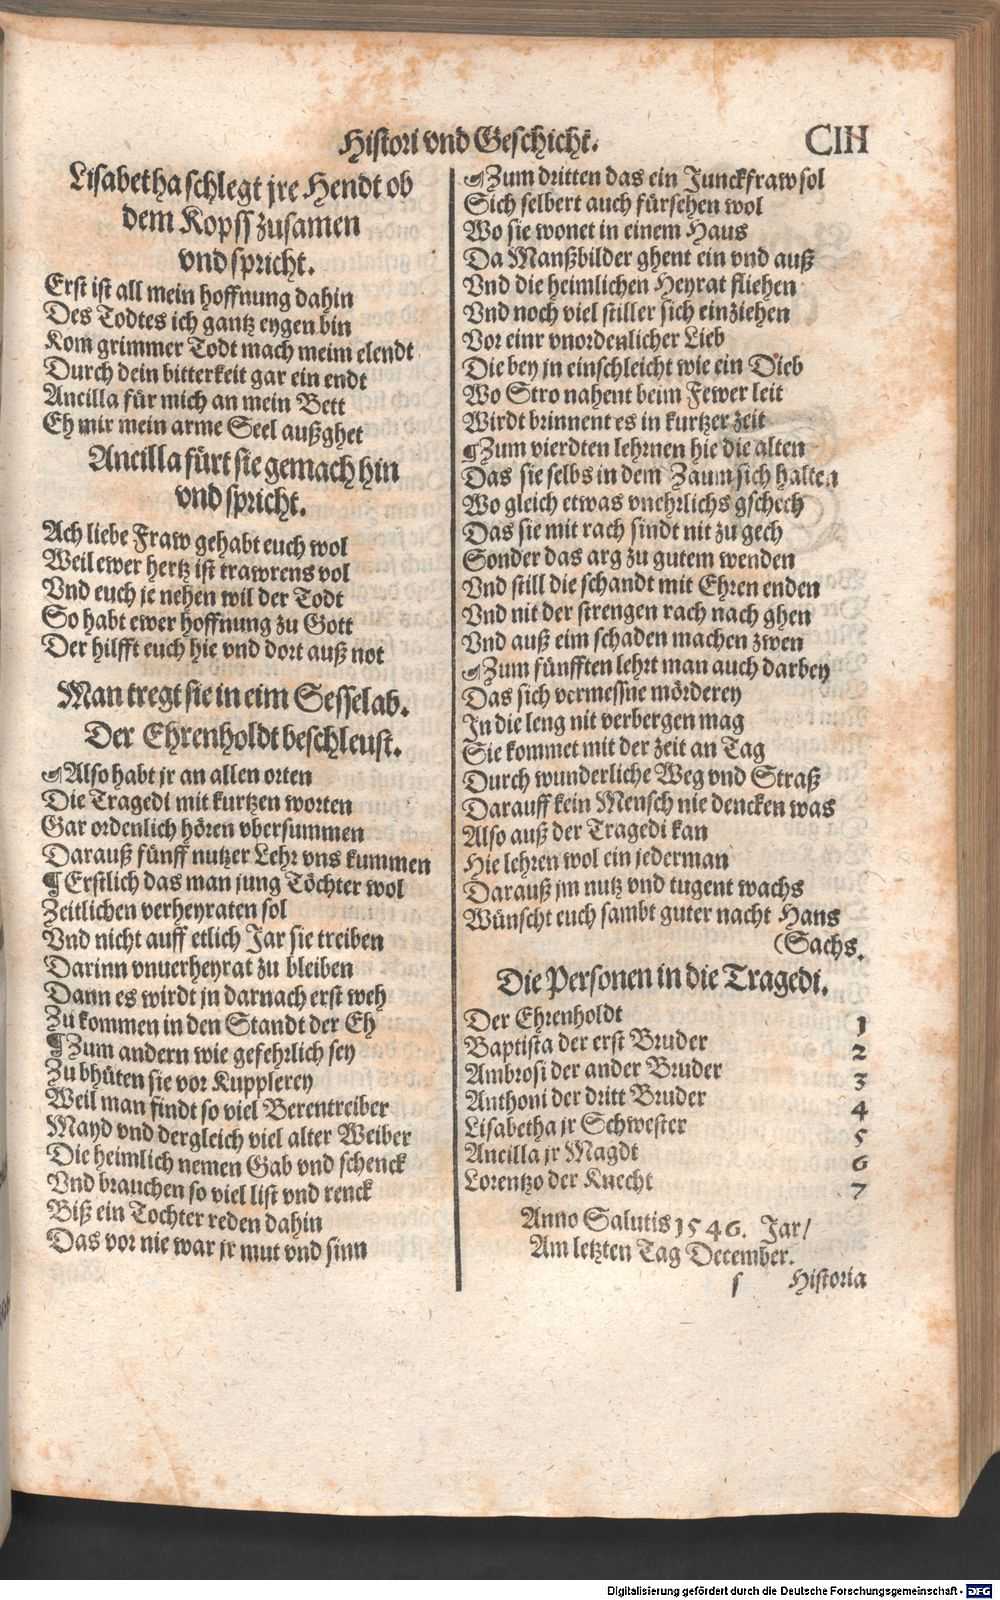 Histori vnd Geschicht.
CIII
Lisabetha schlegt jre Hendt ob
dem Kopff zusamen
vnd spricht.
Erst ist all mein hoffnung dahin
Des Todtes ich gantz eygen bin
Kom grimmer Todt mach meim elendt
Durch dein bitterkeit gar ein endt
Ancilla für mich an mein Bett
Eh mir mein arme Seel außghet
Ancilla fürt sie gemach hin
vnd spricht.
Ach liebe Fraw gehabt euch wol
Weil ewer hertz ist trawrens vol
Vnd euch je nehen wil der Todt
So habt ewer hoffnung zu Gott
Der hilfft euch hie vnd dort auß not
Man tregt sie in eim Sessel ab.
Der Ehrenholdt beschleust.
☙Also habt jr an allen orten
Die Tragedi mit kurtzen worten
Gar ordenlich hören vbersummen
Darauß fünff nutzer Lehr vns kummen
¶Erstlich das man jung Töchter wol
Zeitlichen verheyraten sol
Vnd nicht auff etlich Jar sie treiben
Darinn vnuerheyrat zu bleiben
Dann es wirdt jn darnach erst weh
Zu kommen in den Standt der Eh
¶Zum andern wie gefehrlich sey
Zu bhüten sie vor Kupplerey
Weil man findt so viel Berentreiber
Mayd vnd dergleich viel alter Weiber
Die heimlich nemen Gab vnd schenck
Vnd brauchen so viel list vnd renck
Biß ein Tochter reden dahin
Das vor nie war jr mut vnd sinn
☙Zum dritten das ein Junckfraw sol
Sich selbert auch fürsehen wol
Wo sie wonet in einem Haus
Da Manßbilder ghent ein vnd auß
Vnd die heimlichen Heyrat fliehen
Vnd noch viel stiller sich einziehen
Vor einr vnordenlicher Lieb
Die bey jn einschleicht wie ein Dieb
Wo Stro nahent beim Fewer leit
Wirdt brinnent es in kurtzer zeit
¶Zum vierdten lehrnen hie die alten
Das sie selbs in dem Zaum sich halten
Wo gleich etwas vnehrlichs gschech
Das sie mit rach sindt nit zu gech
Sonder das arg zu gutem wenden
Vnd still die schandt mit Ehren enden
Vnd nit der strengen rach nach ghen
Vnd auß eim schaden machen zwen
☙Zum fünfften lehrt man auch darbey
Das sich vermessne mörderey
In die leng nit verbergen mag
Sie kommet mit der zeit an Tag
Durch wunderliche Weg vnd Straß
Darauff kein Mensch nie dencken was
Also auß der Tragedi kan
Hie lehren wol ein jederman
Darauß jm nutz vnd tugent wachs
Wünscht euch sambt guter nacht Hans
(Sachs.
Die Personen in die Tragedi.
Der Ehrenholdt 1
Baptista der erst Bruder 2
Ambrosi der ander Bruder 3
Anthoni der dritt Bruder 4
Lisabetha jr Schwester 5
Ancilla jr Magdt 6
Lorentzo der Knecht 7
Anno Salutis 1546. Jar/
Am letzten Tag December.
s Historia
Digitalisierung gefördert durch die Deutsche Forschungsgemeinschaft - DFG